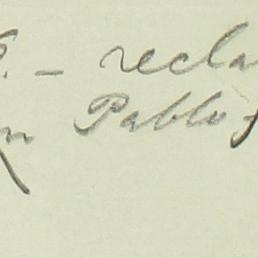 . – recla
n Pablo